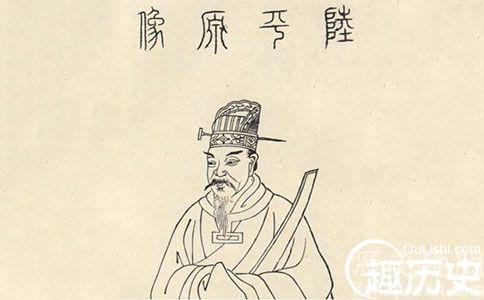 陸平原像
QuLishi.com
趣历史